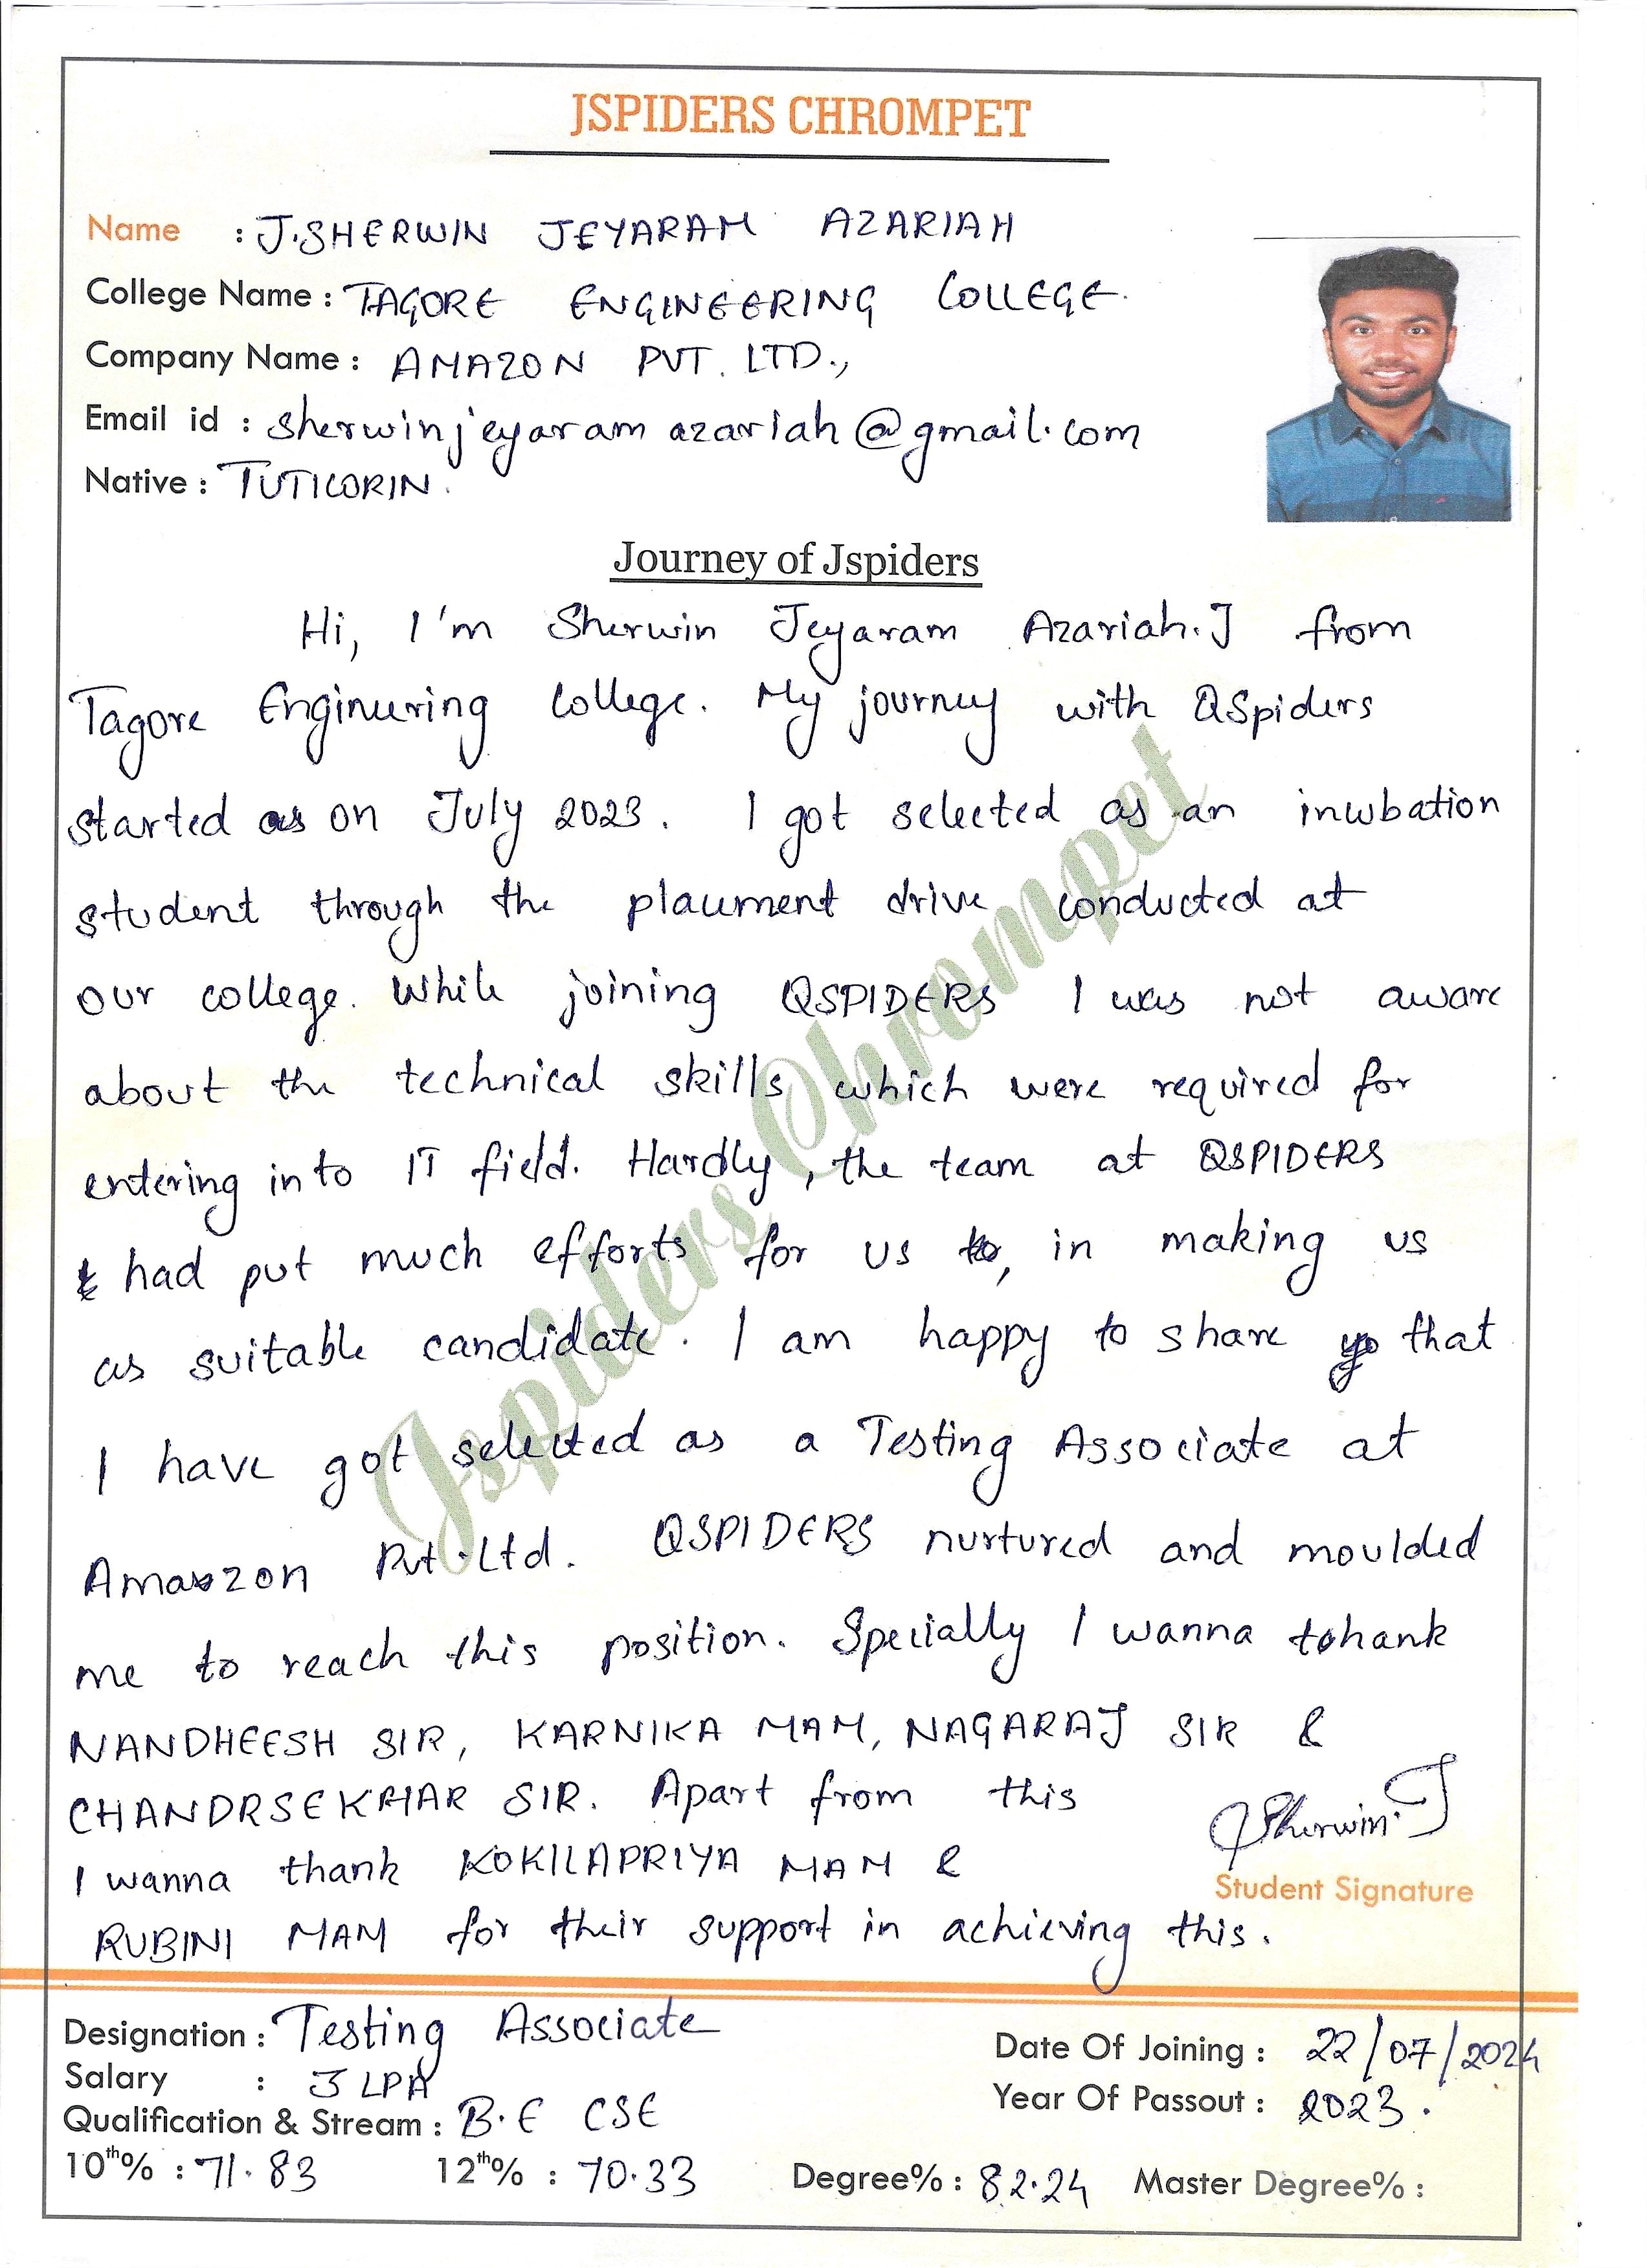 JSPIDERS CHROMPET
Name : J.SHERWIN JEYARAM AZARIAH
College Name : TAGORE ENGINEERING COLLEGE.
Company Name : AMAZON PVT. LTD.,
Email id : sherwinjeyaramazariah@gmail.com
Native : TUTICORIN.
Journey of Jspiders
Hi, I'm Sherwin Jeyaram Azariah.J from
Tagore Engineering College. My journey with QSpiders
started as on July 2023. I got selected as an incubation
student through the placement drive conducted at
our college. While joining QSPIDERS I was not aware
about the technical skills which were required for
entering into IT field. Hardly, the team at QSPIDERS
had put much efforts for us to, in making us
as suitable candidate. I am happy to share that
I have got selected as a Testing Associate at
Amazon Pvt.Ltd. QSPIDERS nurtured and moulded
me to reach this position. Specially I wanna thank
NANDHEESH SIR, KARNIKA MAM, NAGARAJ SIR &
CHANDRSEKHAR SIR. Apart from this
I wanna thank KOKILAPRIYA MAM &
RUBINI MAM for their support in achieving this.
JSherwin.J
Student Signature
Jspiders Chrompet
Designation : Testing Associate
Date Of Joining : 22/07/2024
Salary : 3 LPA
Year Of Passout : 2023.
Qualification & Stream : B.E CSE
10th% : 71.83 12th% : 70.33 Degree% : 82.24 Master Degree% :